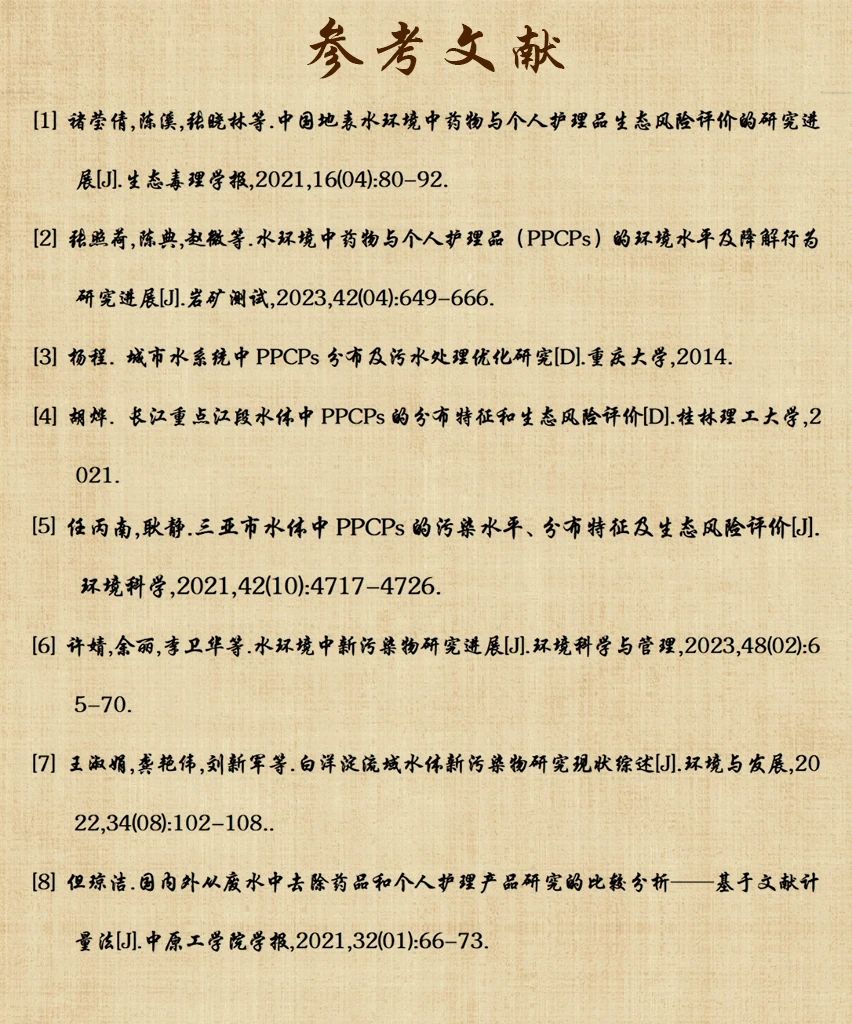 参考文献
[1] 诸莹倩,陈溪,张晓林等.中国地表水环境中药物与个人护理品生态风险评价的研究进
展[J].生态毒理学报,2021,16(04):80-92.
[2] 张照荷,陈典,赵微等.水环境中药物与个人护理品（PPCPs）的环境水平及降解行为
研究进展[J].岩矿测试,2023,42(04):649-666.
[3] 杨程. 城市水系统中PPCPs分布及污水处理优化研究[D].重庆大学,2014.
[4] 胡烨. 长江重点江段水体中PPCPs的分布特征和生态风险评价[D].桂林理工大学,2
021.
[5] 任丙南,耿静.三亚市水体中PPCPs的污染水平、分布特征及生态风险评价[J].
环境科学,2021,42(10):4717-4726.
[6] 许婧,余丽,李卫华等.水环境中新污染物研究进展[J].环境科学与管理,2023,48(02):6
5-70.
[7] 王淑娟,龚艳伟,刘新军等.白洋淀流域水体新污染物研究现状综述[J].环境与发展,20
22,34(08):102-108..
[8] 但琼洁.国内外从废水中去除药品和个人护理产品研究的比较分析——基于文献计
量法[J].中原工学院学报,2021,32(01):66-73.